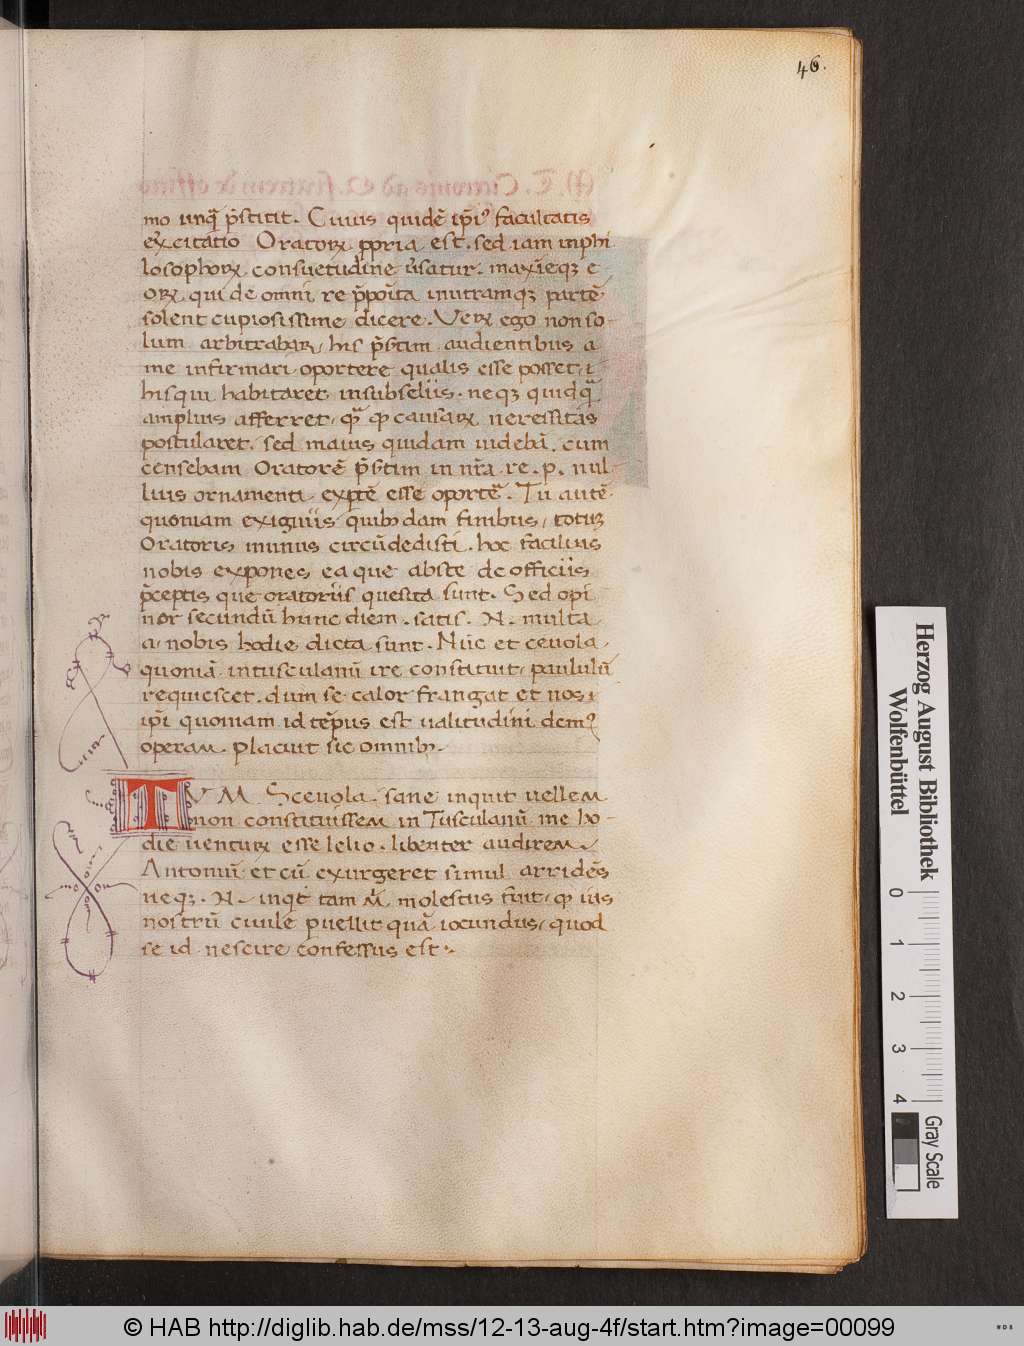 46.
mo unq̃ p̃stitit. Cuius quidē ip̃iꝰ facultatis
exercitatio Oratoꝝ ꝓpria est. sed iam inphi
losophoꝝ consuetudine ũsatur. maxīeqꝫ e
oꝝ qui de omni re p̃poĩta inutramqꝫ partē
solent cupiosissime dicere. Veꝝ ego non so-
lum arbitrabaꝝ, his p̃s̃tim audientibus a
me infirmari oportere qualis esse posset, ĩ
his qui habitaret insubseliis. neqꝫ quidq̃
amplius afferret, q̃ ꝙ causaꝝ neressitas
postularet. sed maius quidam uidebā. cum
censebam Oratorē p̃s̃tim in nr̃a re. p. nul
lius ornamenti expertē esse oporte᷑. Tu autē
quoniam exiguiis quibꝰdam finibus, totuꝝ
Oratoris munus circūdedisti. hoc facilius
nobis expones ea que abste de officiis
p̃ceptis que oratoriis quesita sunt. Sed opi
nor secundū hunc diem. satis. N. multa
a, nobis hodie dicta sunt. Nūc et ceuola.
quoniā intusculanū ire constituit, paululū
requiescet. dum se calor frangat et nos i
ip̃i quoniam id tēpus est ualitudini demꝰ
operam. placuit sic omnibꝰ.
TVM Sceuola. sane inquit uellem
non constituissem in Tusculanū me ho-
die uentuꝝ esse lelio. libenter audirem
Antoniū et cū exurgeret simul arridēs
neqꝫ. N. inqt tam m̃ molestus fuit, ꝙ ius
nostrū ciuile puellit quā iocundus, quod
se id nescire confessus est.
Herzog August Bibliothek
Wolfenbüttel
0 1 2 3 4
Gray Scale
© HAB http://diglib.hab.de/mss/12-13-aug-4f/start.htm?image=00099